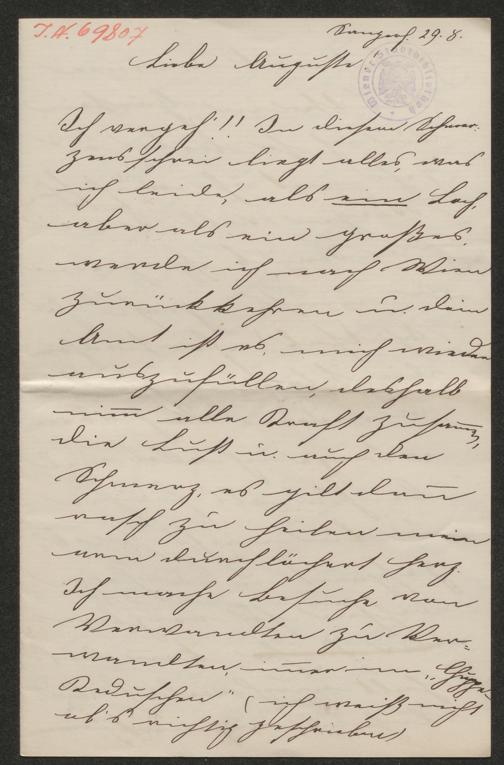 I.N. 69807
29. 8.
Liebe Auguste
Ich vergeh'!! In diesem Schmer-
zensschrei liegt alles, was
ich leide, als ein Loch,
aber als ein großes,
werde ich nach Wien
zurückkehren u. dein
Amt ist es, mich wieder
auszufüllen, deshalb
nimm alle Kraft zusamm,
die Lust u. auch den
Schmerz, es gilt dann
rasch zu heilen mein
arm durchlöchert Herz.
Ich mache Besuche von
Verwandten zu Ver-
wandten, immer im
(ich weiß nicht
ob's richtig geschrieben)